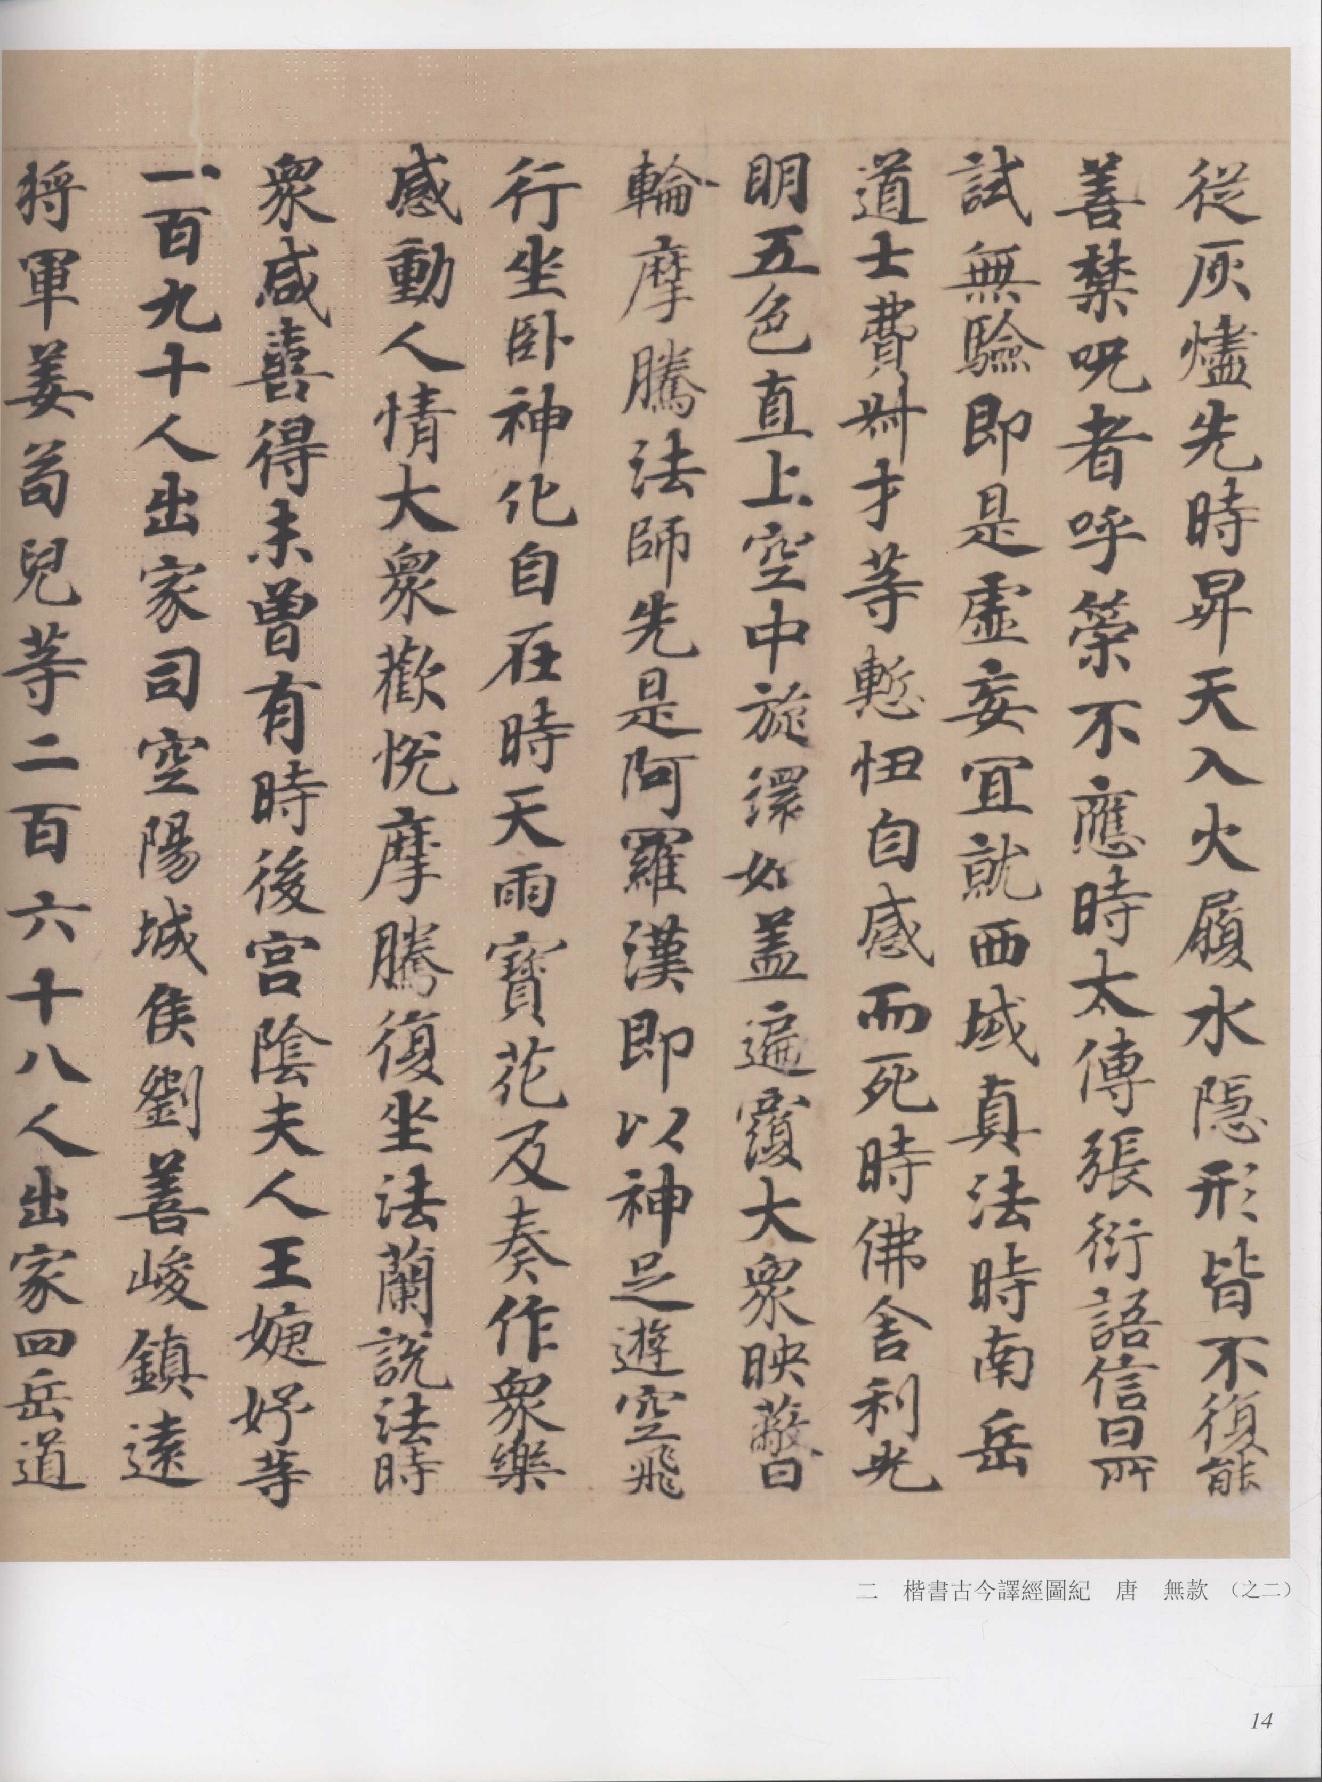 從灰燼先時昇天入火履水隱形皆不復能
善禁呪者呼策不應時太傅張衍語信曰所
試無驗即是虛妄宜就西域真法時南岳
道士費叔才等慙忸自感而死時佛舍利光
明五色直上空中旋環如蓋遍覆大眾映蔽日
輪摩騰法師先是阿羅漢即以神足遊空飛
行坐臥神化自在時天雨寶花及奏作眾樂
感動人情大眾歡悅摩騰復坐法蘭說法時
眾咸喜得未曾有時後宮陰夫人王婕妤等
一百九十人出家司空陽城侯劉善峻鎮遠
將軍姜苟兒等二百六十八人出家四岳道
二　楷書古今譯經圖紀　唐　無款　（之二）
14